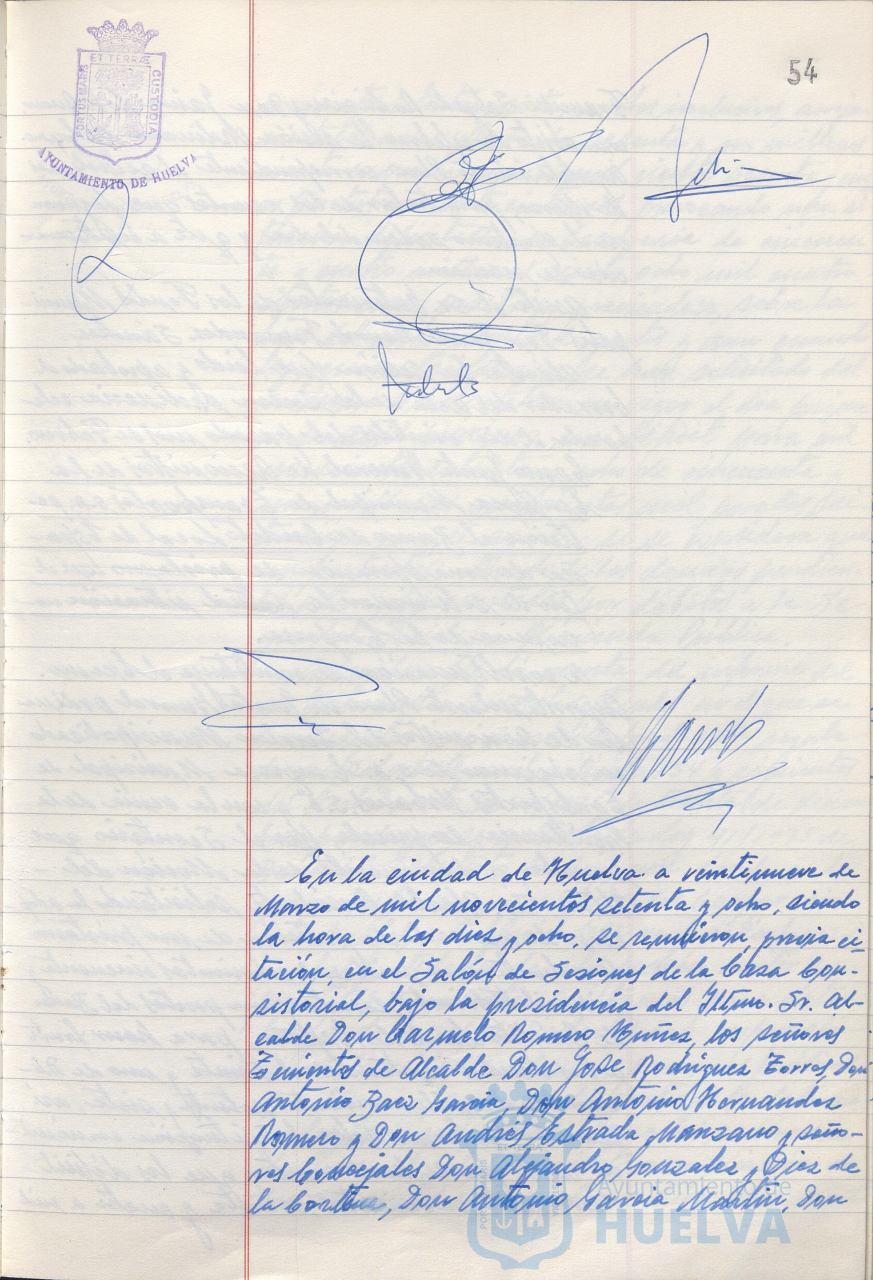 54
ET TERRÆ
PORTUS MARIS
CUSTODIA
AYUNTAMIENTO DE HUELVA
En la ciudad de Huelva a veintinueve de
Marzo de mil novecientos setenta y ocho, siendo
la hora de las diez y ocho, se reunieron, previa ci-
tación, en el Salón de Sesiones de la Casa Con-
sistorial, bajo la presidencia del Iltmo. Sr. Al-
calde Don Carmelo Romero Nuñez, los señores
Tenientes de Alcalde Don Jose Rodriguez Torres, Don
Antonio Baez Garcia, Don Antonio Hernandez
Romero y Don Andrés Estrada Manzano y seño-
res Concejales Don Alejandro Gonzalez y Diez de
la Cortina, Don Antonio Garcia Martin, Don
Ayuntamiento de
HUELVA